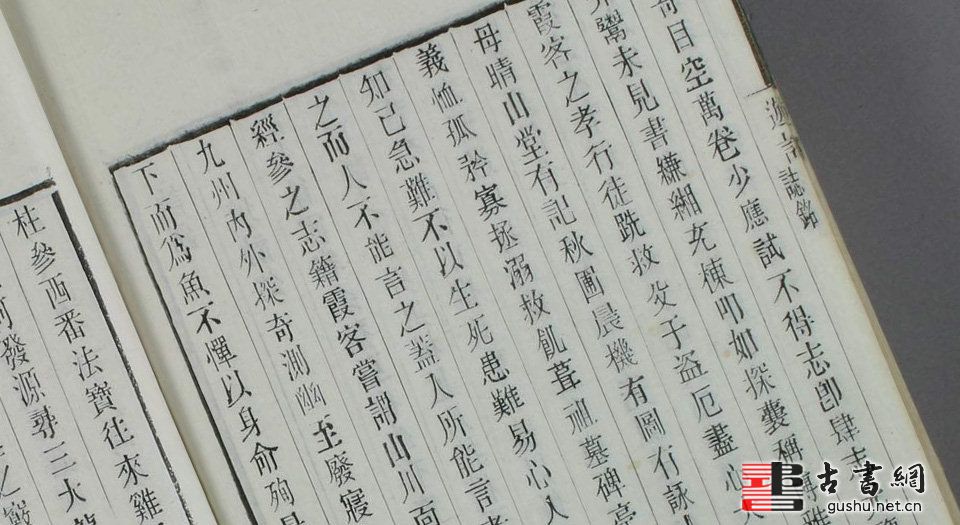 遊記誌銘
奇目空萬卷少應試不得志卽肆志
未見書縑緗充棟叩如探囊稱
霞客之孝行徒跣救父于盜厄盡心
母晴山堂有記秋圃晨機有圖有詠
義恤孤矜寡拯溺救飢葺祖墓碑亭
知己急難不以生死患難易心人
之而人不能言之蓋人所能言者
經參之志籍霞客嘗謂山川面
九州內外探奇測幽至廢寢
下而爲魚不憚以身命殉是
柱參西番法寶往來雞
發源尋三大龍
古書網
gushu.net.cn